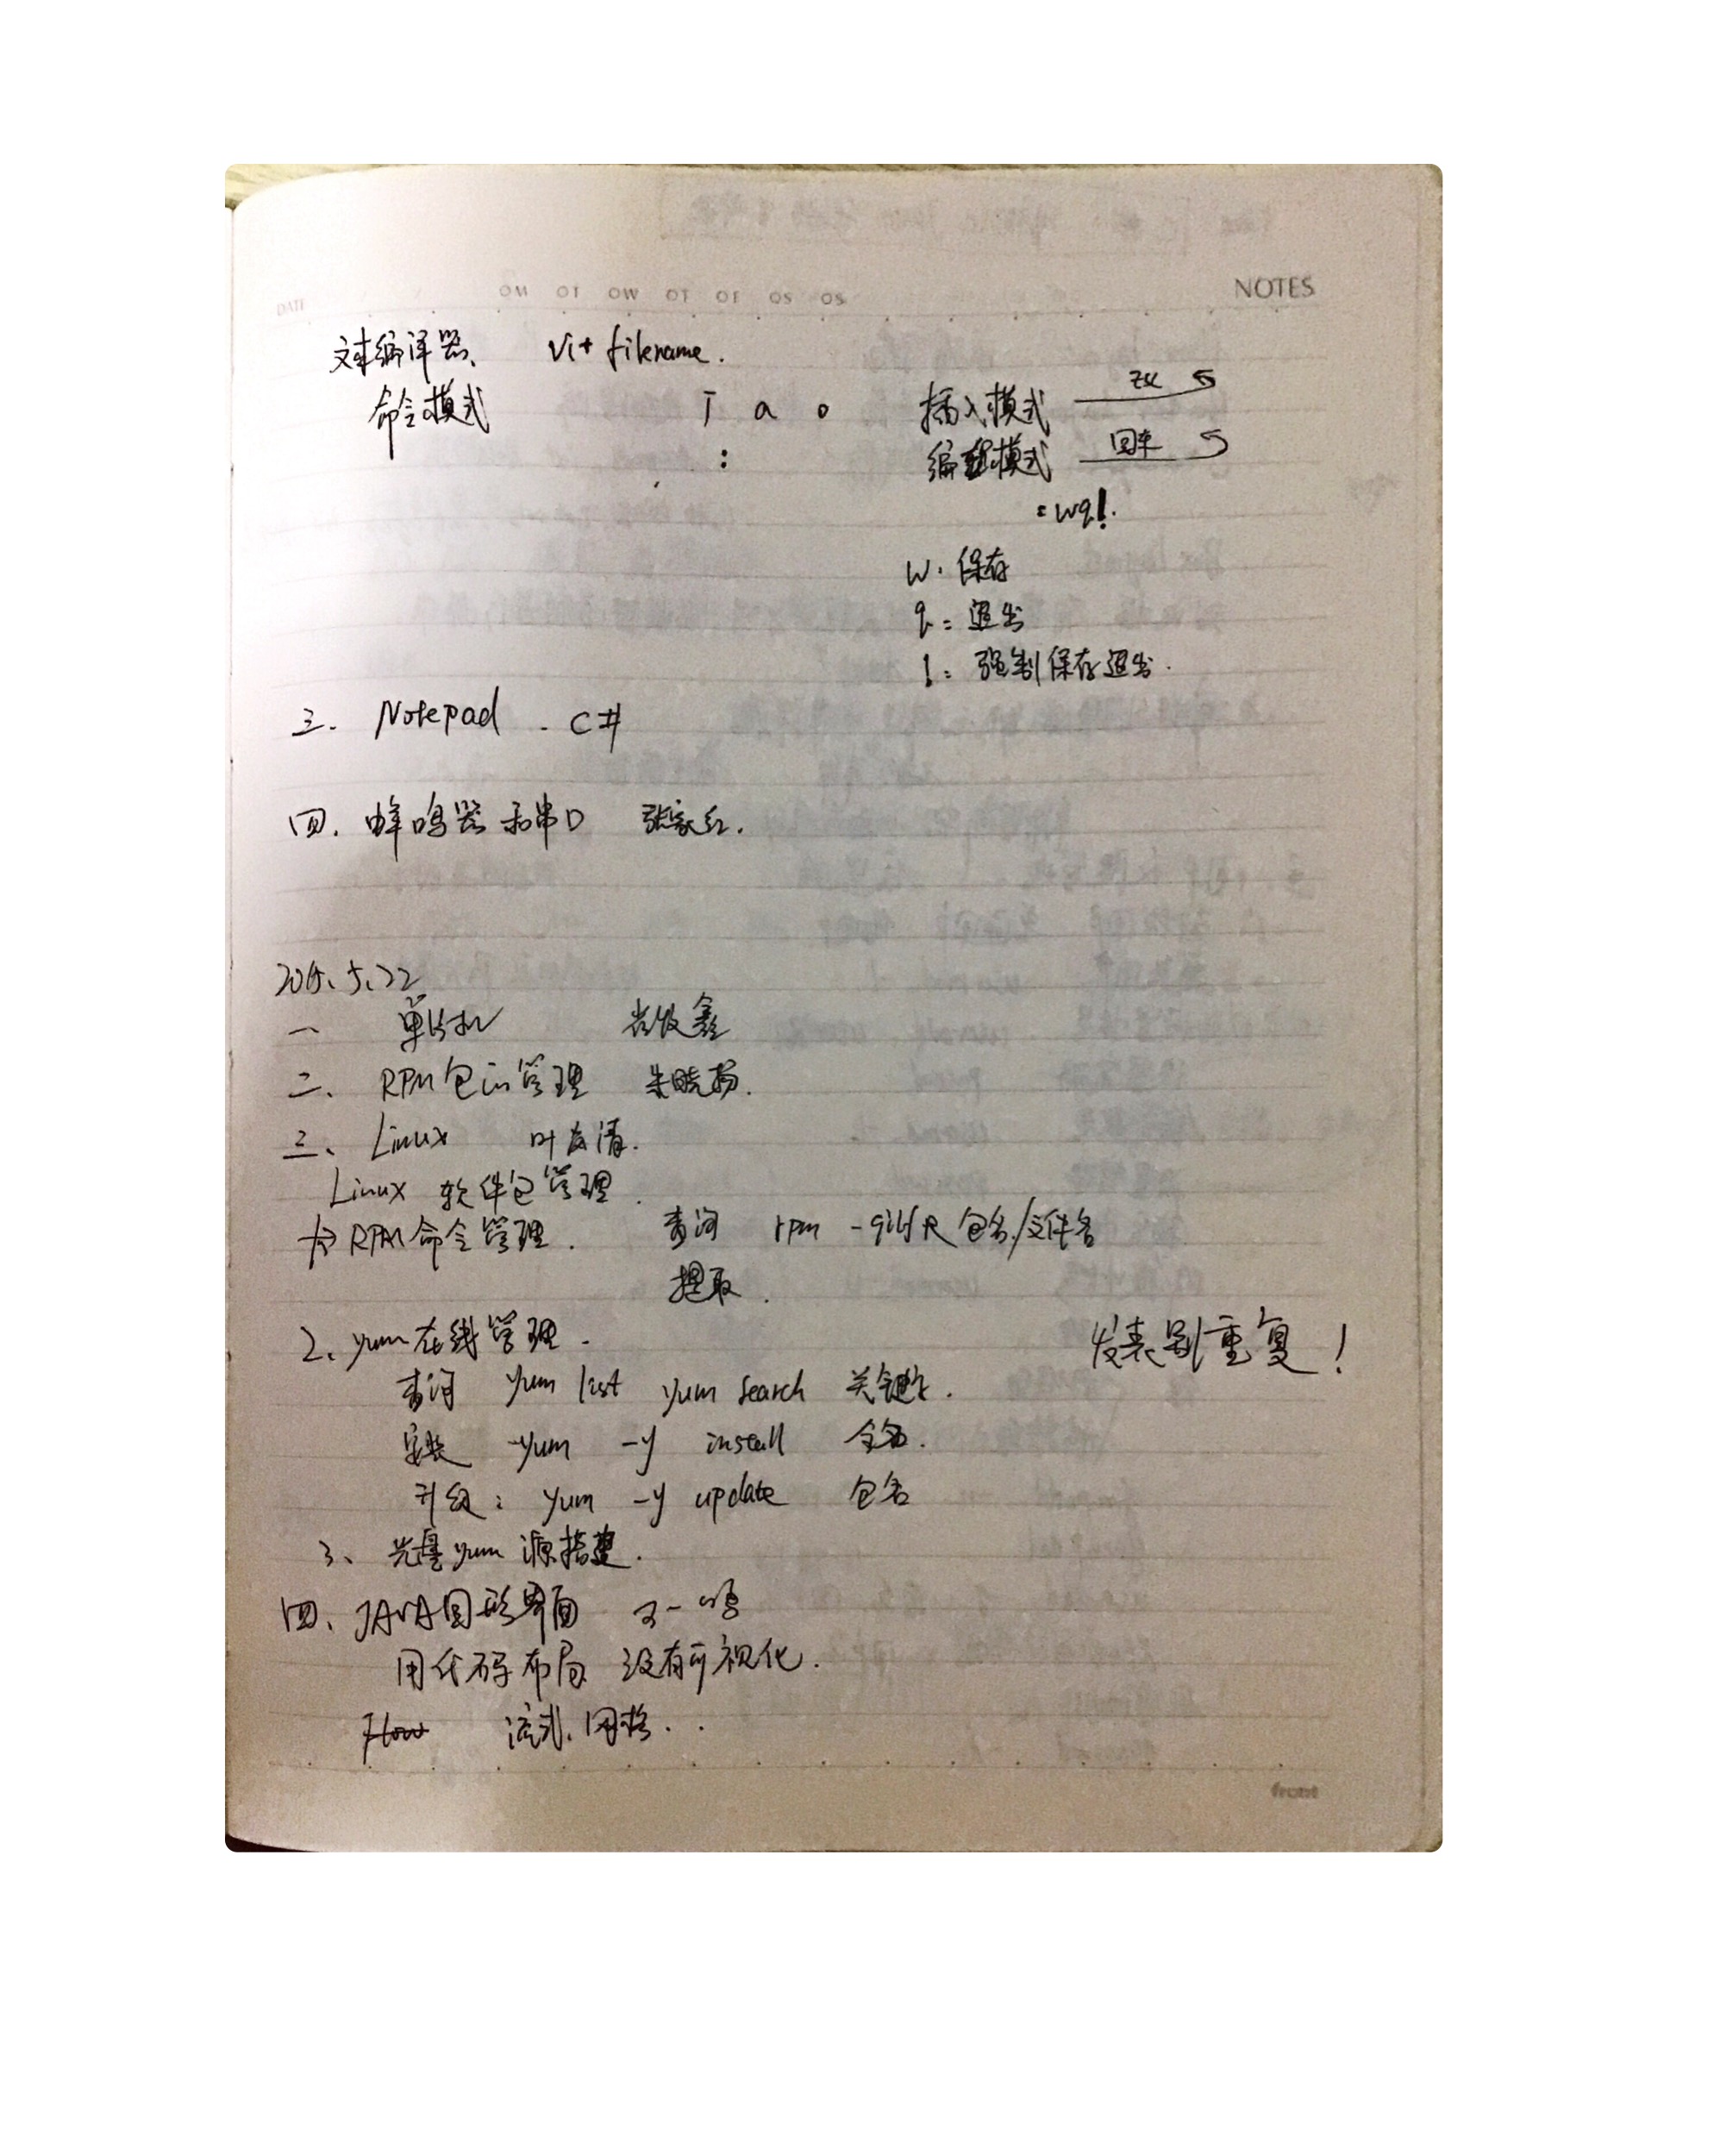 DATE OM OT OW OT OF OS OS NOTES
文本编译器、 Vi+ filename.
命令模式 i a o 插入模式
: 编辑模式 回车
:wq!.
W: 保存
q: 退出
!: 强制保存退出.
三. Notepad . C#
四. 蜂鸣器和串口 张家红.
5.22
一 单片机 鑫
二、 RPM包的管理 朱晓扬.
三、 Linux 叶友清.
Linux 软件包管理.
RPM命令管理. 查询 rpm 包名/文件名
提取.
2、yum在线管理.
发表别重复!
查询 yum list yum search 关键字.
安装 yum -y install 包名.
升级: yum -y update 包名
3、 光盘yum源搭建.
四、JAVA图形界面 王一鸣
用代码布局 没有可视化.
Flow 流式、网格..
front